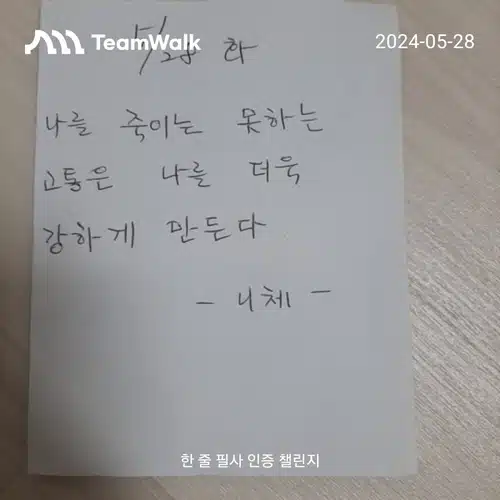 TeamWalk
2024-05-28
5/28 화
나를 죽이는 못하는
고통은 나를 더욱
강하게 만든다
- 니체 -
한 줄 필사 인증 챌린지